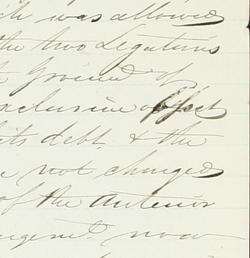 was allowed
the two Legatees
Ground of
exclusive effect
its debt & the
not changed
of the Interior
now